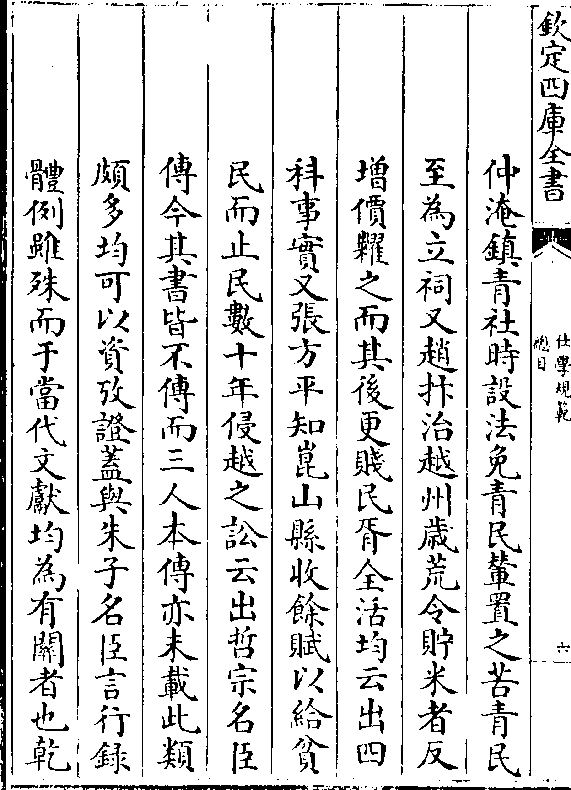 欽定四庫全書
仕學規範
總目
六
仲淹鎮青社時設法免青民輦置之苦青民
至為立祠又趙抃治越州歲荒令貯米者反
增價糶之而其後更賤民胥全活均云出四
科事實又張方平知崑山縣收餘賦以給貧
民而止民數十年侵越之訟云出哲宗名臣
傳今其書皆不傳而三人本傳亦未載此類
頗多均可以資攷證蓋與朱子名臣言行録
體例雖殊而于當代文獻均為有關者也乾